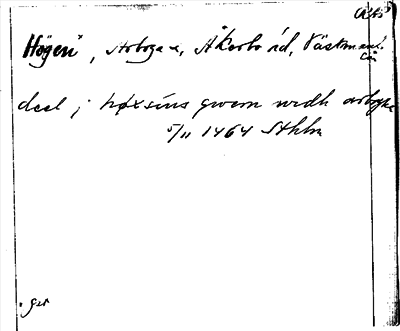 Högen, Arboga s, Åkerbo hd, Västmanl.
län
deel j høxsins qwern widh arboghe
5/11 1464 Sthlm